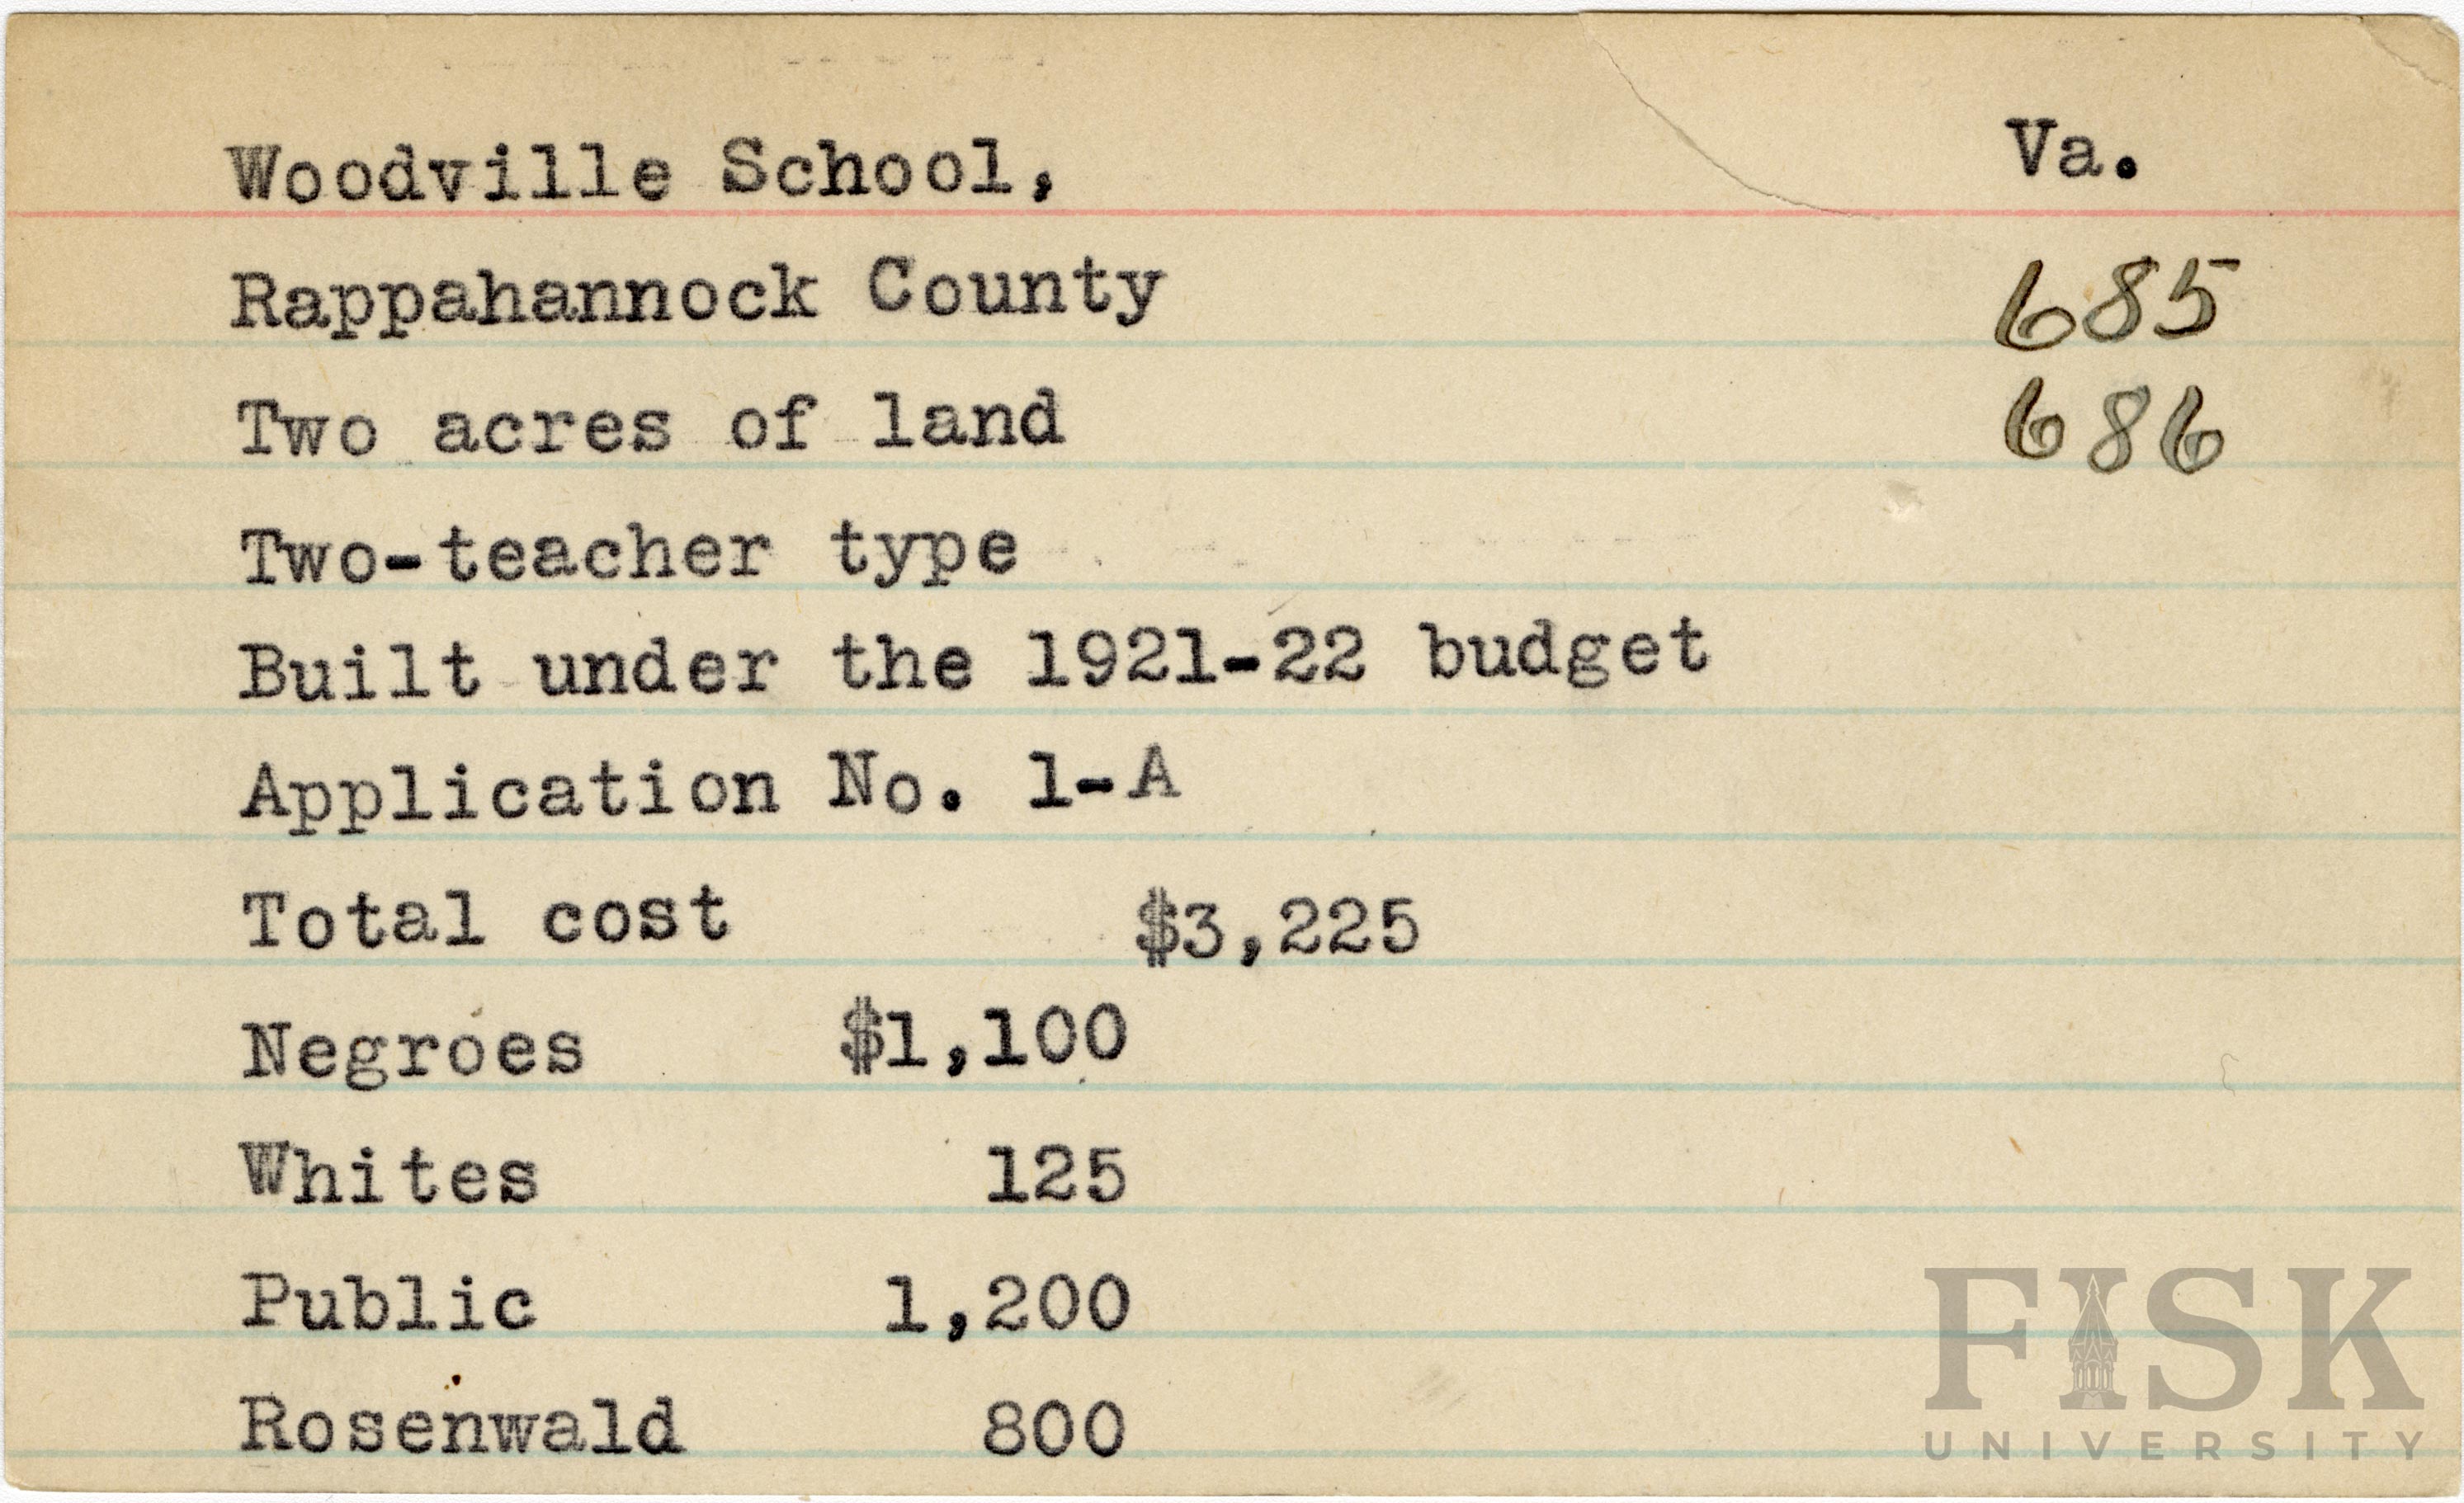 Woodville School, Va.
Rappahannock County 685
Two acres of land 686
Two-teacher type
Built under the 1921-22 budget
Application No. 1-A
Total cost $3,225
Negroes $1,100
Whites 125
Public 1,200
Rosenwald 800
FISK
UNIVERSITY